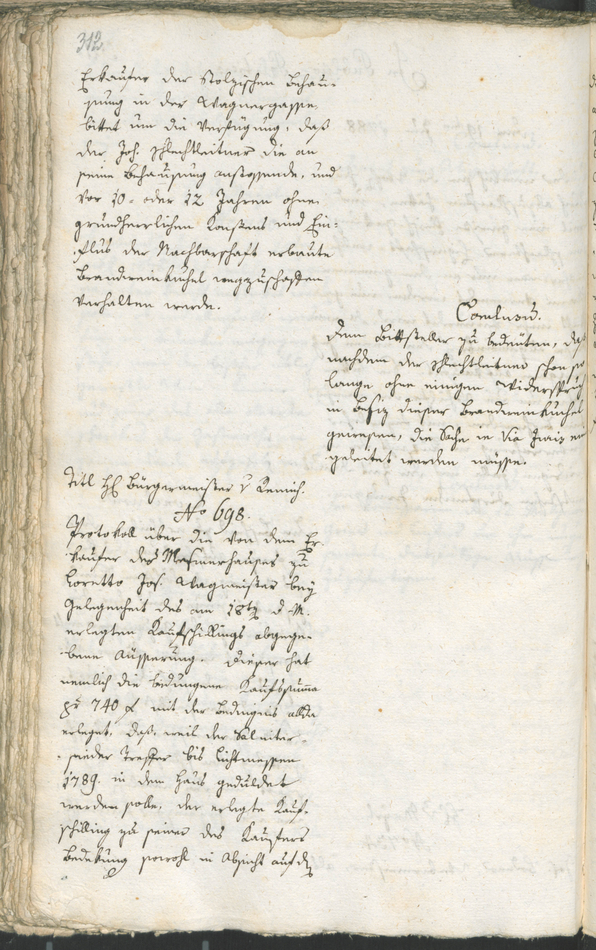 312.
Erkaufer der Stolzischen Behau-
sung in der Wagnergasse
bittet um die Verfügung, daß
der Jos. Schlechtleitner die an
seine Behausung anstossende, und
vor 10- oder 12 Jahren ohne
grundherrlichen Consens und Ein-
fluß der Nachbarschaft erbaute
Brandweinkuchel wegzuschaffen
verhalten werde.
Conclusum.
Dem Bittsteller zu bedeuten, daß
nachdem der Schlechtleitner schon so
lange ohne einigen Widerspruch
in Besiz dieser Brandweinkuchel
gewesen, die Sache in Via Juris ein
geleitet werden müsse.
Titl H Bürgermeister v Remich.
No 698.
Protokoll über die von dem Er-
kaufer des Messnerhauses zu
Loretto Jos. Wagmeister bey
Gelegenheit des am 18t d. M.
erlegten Kaufschillings abgege-
bene Äusserung. Dieser hat
nemlich die bedungene Kaufssumma
pr 740 f mit der Bedingnis allda
erlegt, daß, weil der
bis Lichtmessen
1789. in dem Haus geduldet
werden solle, der erlegte Kauf-
schilling zu seiner des Kaufers
Bedekung sowohl in Absicht auf die